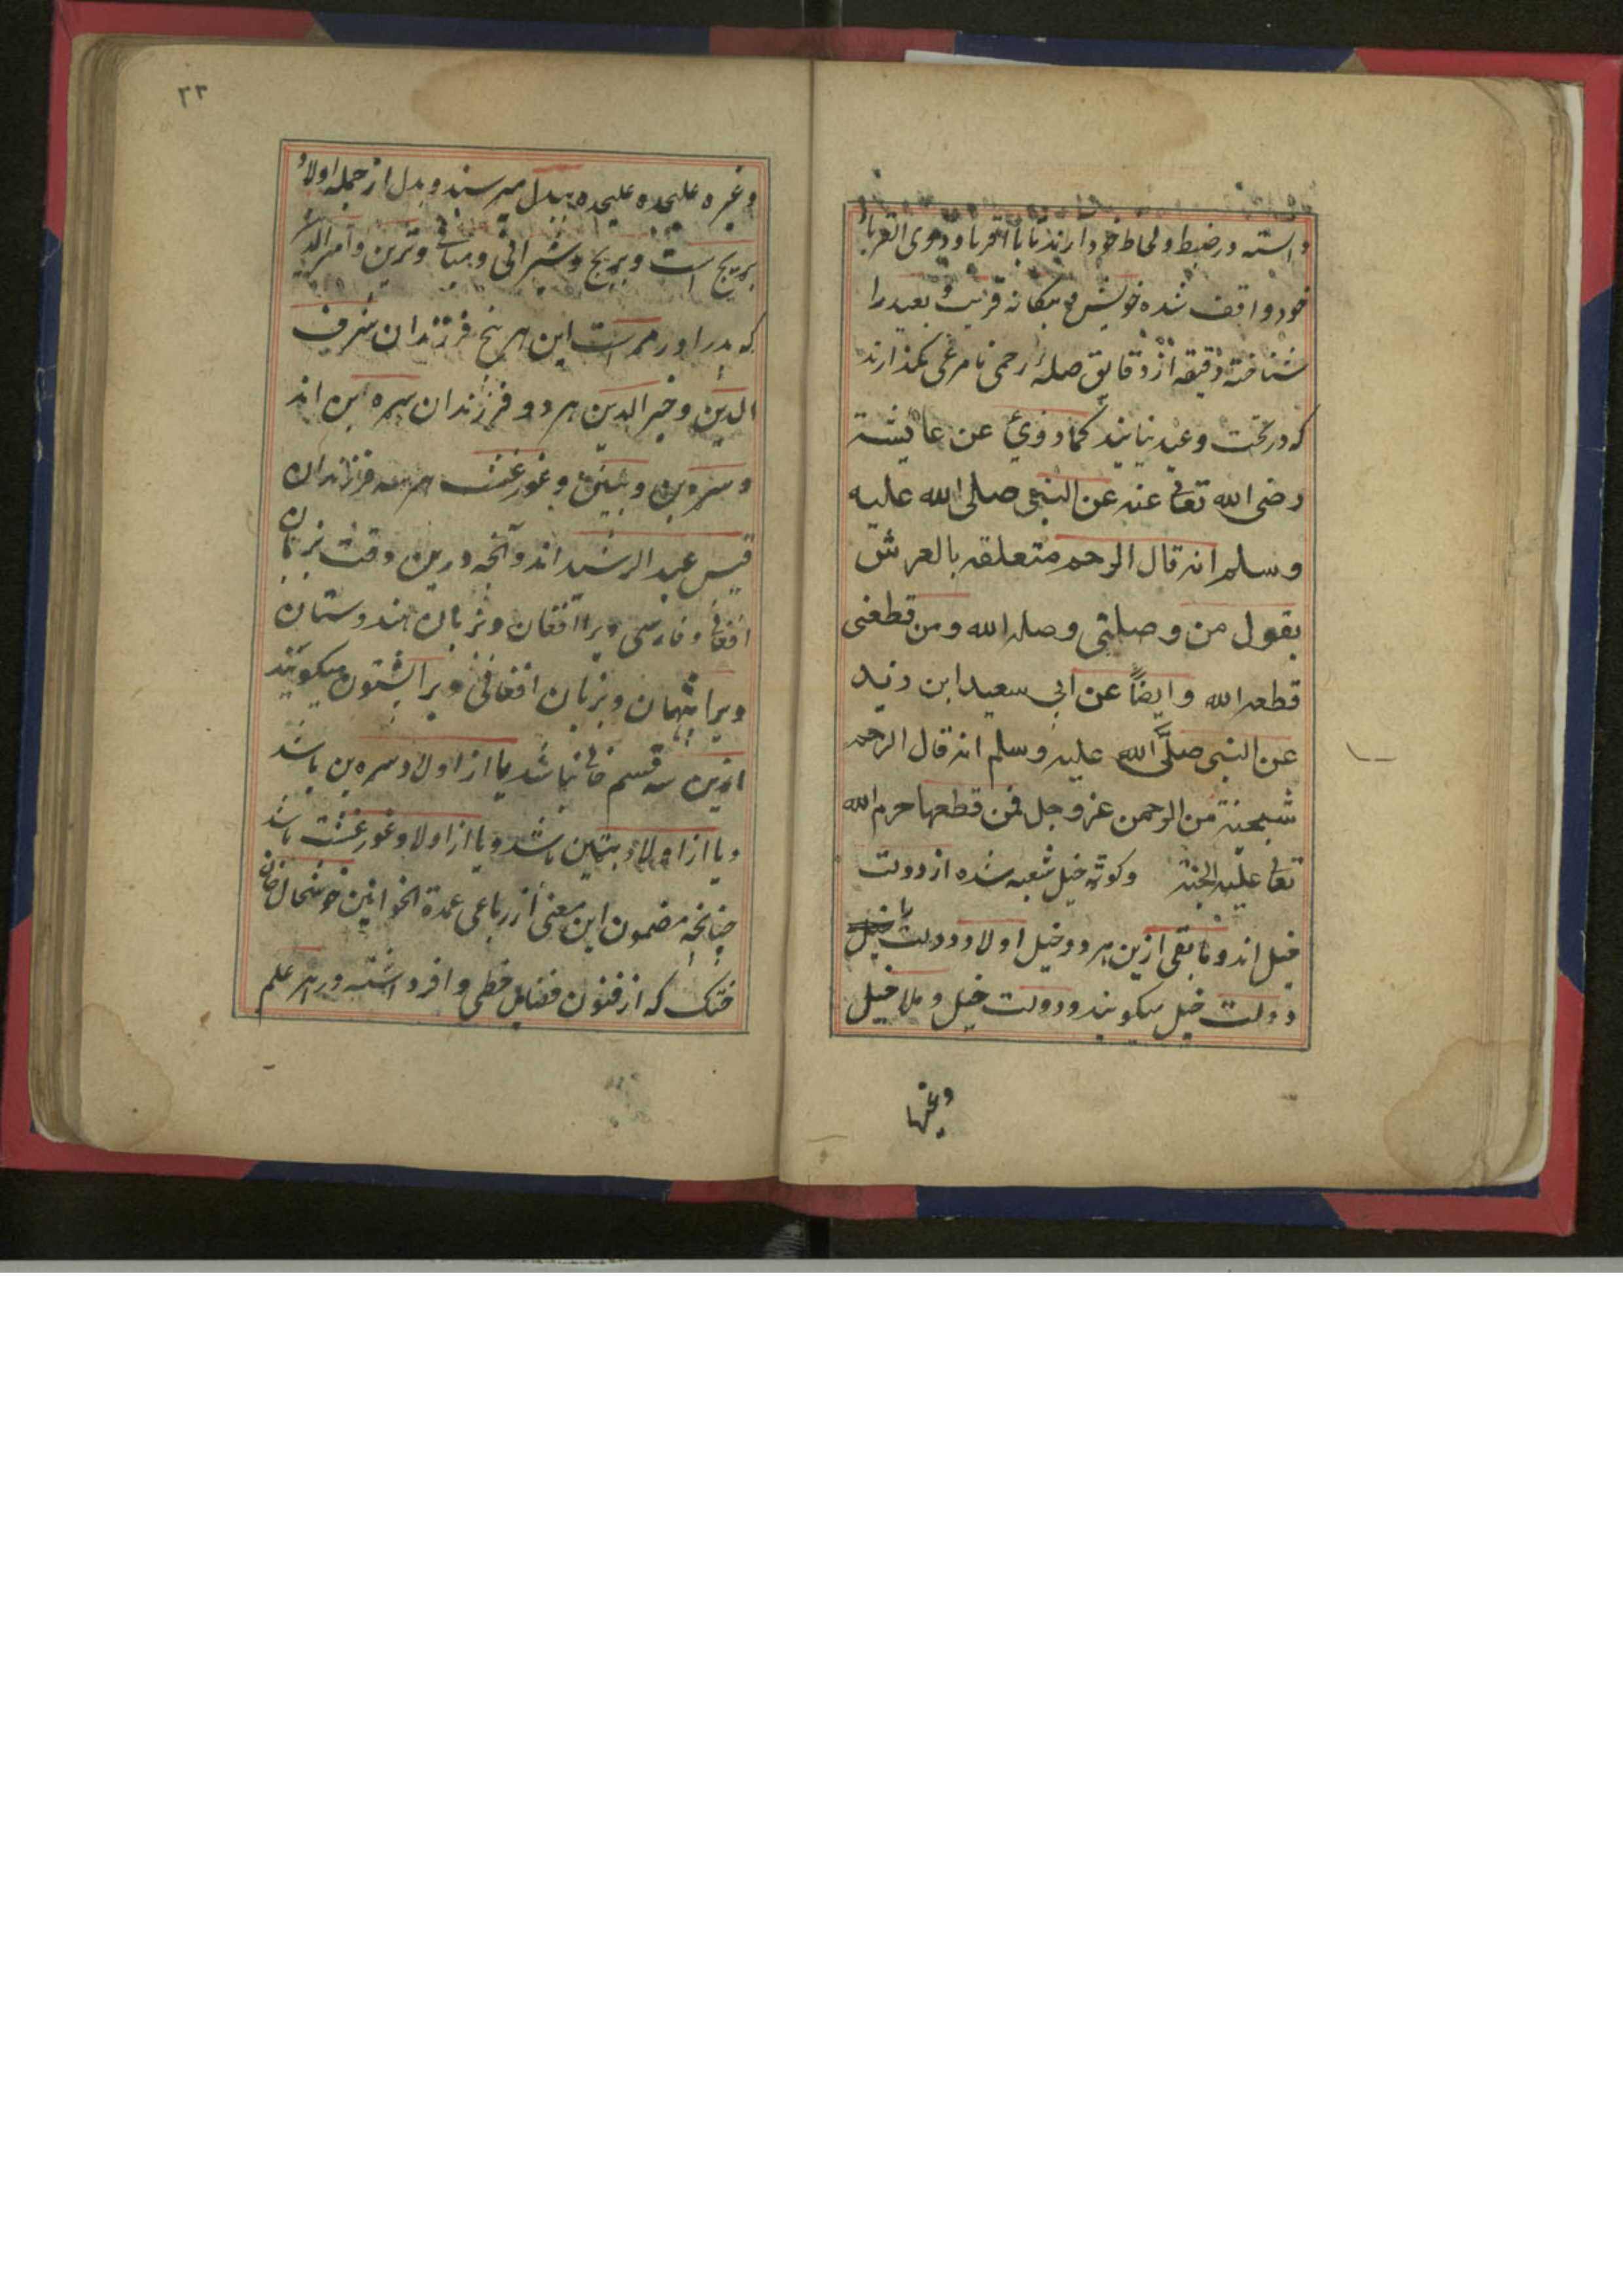 داسته در ضبط و لحاظ خود دارند تا با اقربا و ذوی القربا
خود واقف شده خویش و بیکانه قریب و بعید را
شناخته دقیقه از دقایق صلهٔ رحمی نامرعی نکذارند
که در تحت وعید نیایند کما روئ عن عایشة
رضی الله تعالی عنه عن النبی صلی الله علیه
وسلم انه قال الرحم متعلقه بالعرش
یقول من وصلتی وصله الله ومن قطعنی
قطعه الله وایضاً عن ابی سعید ابن زید
عن النبی صلَّی الله علیه وسلم انه قال الرحم
شبحنة من الرحمن عز وجل فمن قطعها حرم الله
تعالی علیه الجنة وکوته خیل شعبه شده از دولت
خیل اند و مابقی ازین هر دو خیل اولاد دولت را
دولت خیل میکویند و دولت خیل و ملا خیل
وغیرها
۲۳
وغیره علیحده علیحده ببدل میرسند و بدل از جمله اولاد
بریچ است و بریچ و شیرانی و میانی و ترین و امر الدین
که پدر اورمر است این هر پنج فرزندان شرف
الدین و خیر الدین هر دو فرزندان سره بن اند
و سره بن و بتین و غورغشت هر سه فرزندان
قیس عبد الرشید اند و آنچه درین وقت بزبان
افغانی و فارسی ویرا افغان و بزبان هندوستان
ویرا پتهان و بزبان افغانی ویرا پشتون میکویند
ازین سه قسم خالی نباشد یا از اولاد سره بن باشد
و یا از اولاد بتین باشد و یا از اولاد غورغشت باشد
چنانچه مضمون این معنی از رباعی عمدة الخوانین خوشحال خان
ختک که از فنون فضایل خطی وافر داشته و در هر علم